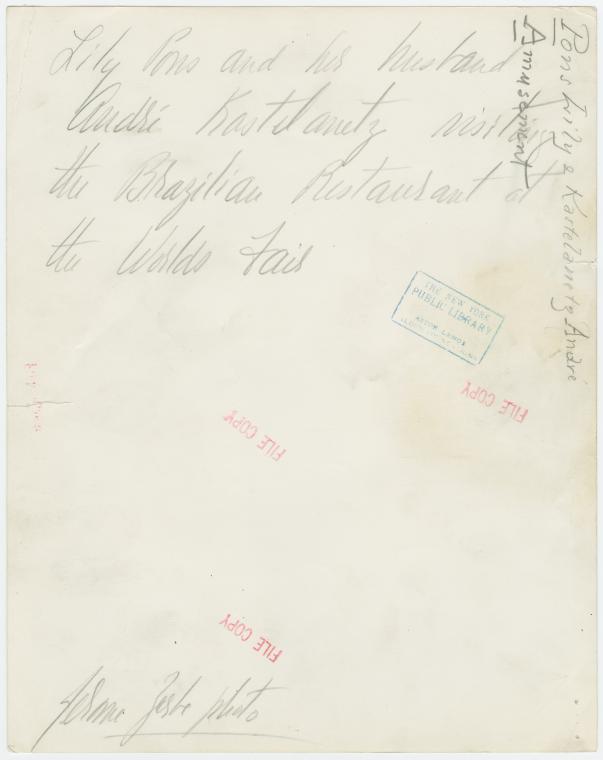 Lily Pons and her husband
André Kostelanetz visiting
the Brazilian Restaurant at
the Worlds Fair
Pons Lily & Kostelanetz André
Amusement
THE NEW YORK
PUBLIC LIBRARY
ASTOR LENOX
FILE COPY
FILE COPY
FILE COPY
FILE COPY
Jerome Zerbe photo